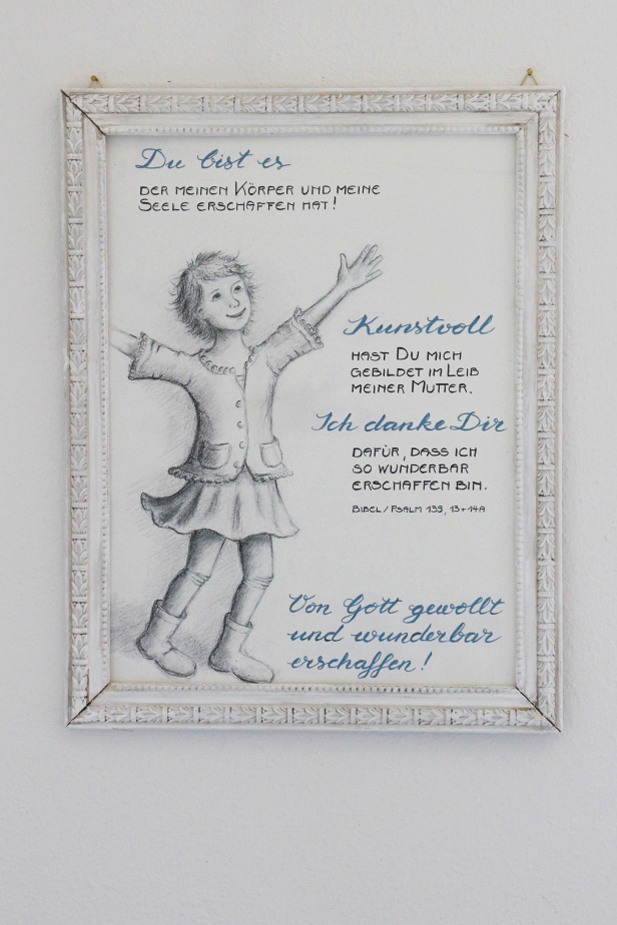 Du bist es
DER MEINEN KÖRPER UND MEINE
SEELE ERSCHAFFEN HAT!
Kunstvoll
HAST DU MICH
GEBILDET IM LEIB
MEINER MUTTER.
Ich danke Dir
DAFÜR, DASS ICH
SO WUNDERBAR
ERSCHAFFEN BIN.
BIBEL / PSALM 139, 13+14A
Von Gott gewollt
und wunderbar
erschaffen!